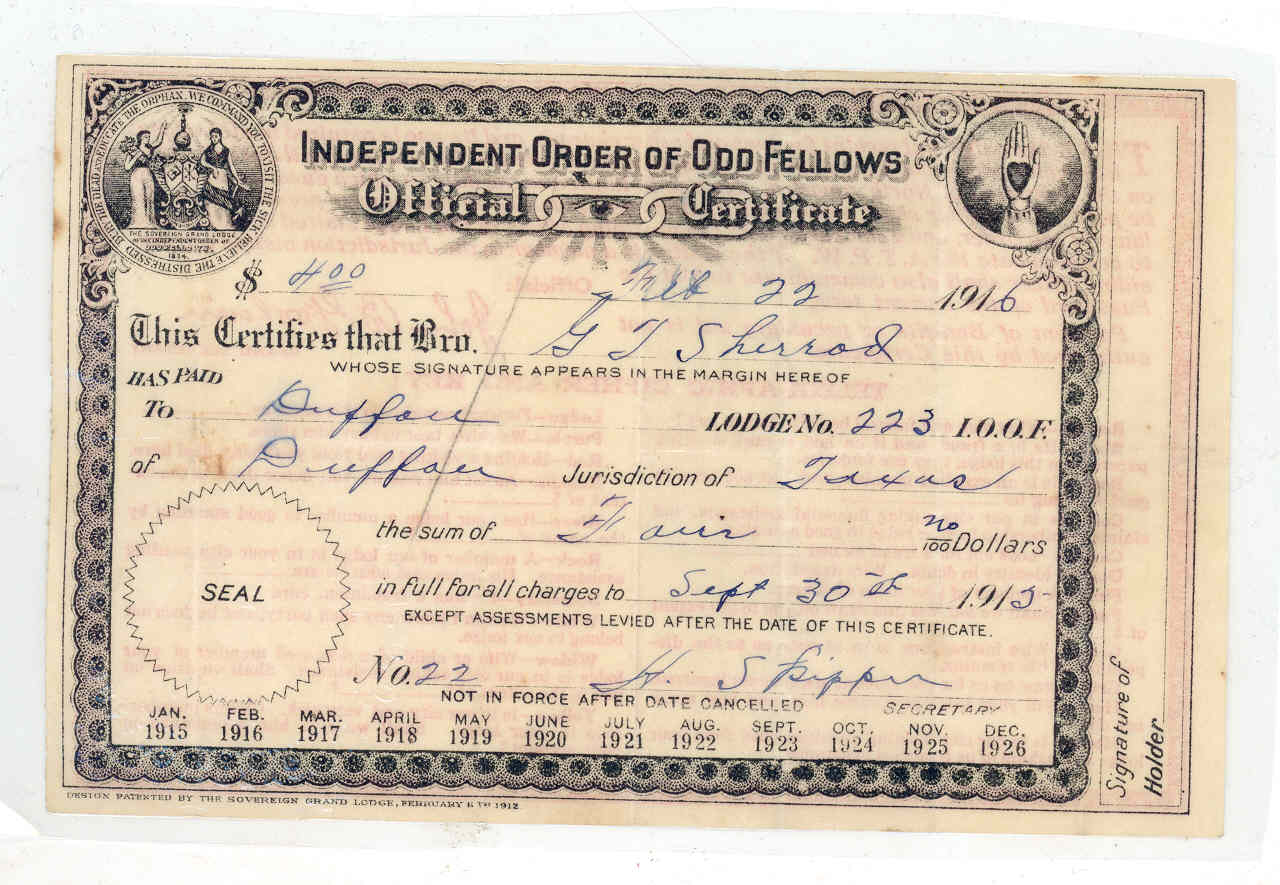 BURY THE DEAD & EDUCATE THE ORPHAN. WE COMMAND YOU TO VISIT THE SICK. RELIEVE THE DISTRESSED
THE SOVEREIGN GRAND LODGE
OF THE INDEPENDENT ORDER OF
ODD FELLOWS
1834
INDEPENDENT ORDER OF ODD FELLOWS
Official Certificate
$ 4 00 Feb 22 1916
This Certifies that Bro. G T Sherrod
WHOSE SIGNATURE APPEARS IN THE MARGIN HEREOF
HAS PAID
To Duffau LODGE No. 223 I.O.O.F.
of Duffau Jurisdiction of Texas
the sum of Four no/100 Dollars
in full for all charges to Sept 30th 1915
EXCEPT ASSESSMENTS LEVIED AFTER THE DATE OF THIS CERTIFICATE.
SEAL
No. 22 H. Skipper
NOT IN FORCE AFTER DATE CANCELLED SECRETARY
JAN. FEB. MAR. APRIL MAY JUNE JULY AUG. SEPT. OCT. NOV. DEC.
1915 1916 1917 1918 1919 1920 1921 1922 1923 1924 1925 1926
Signature of
Holder
DESIGN PATENTED BY THE SOVEREIGN GRAND LODGE, FEBRUARY 1912